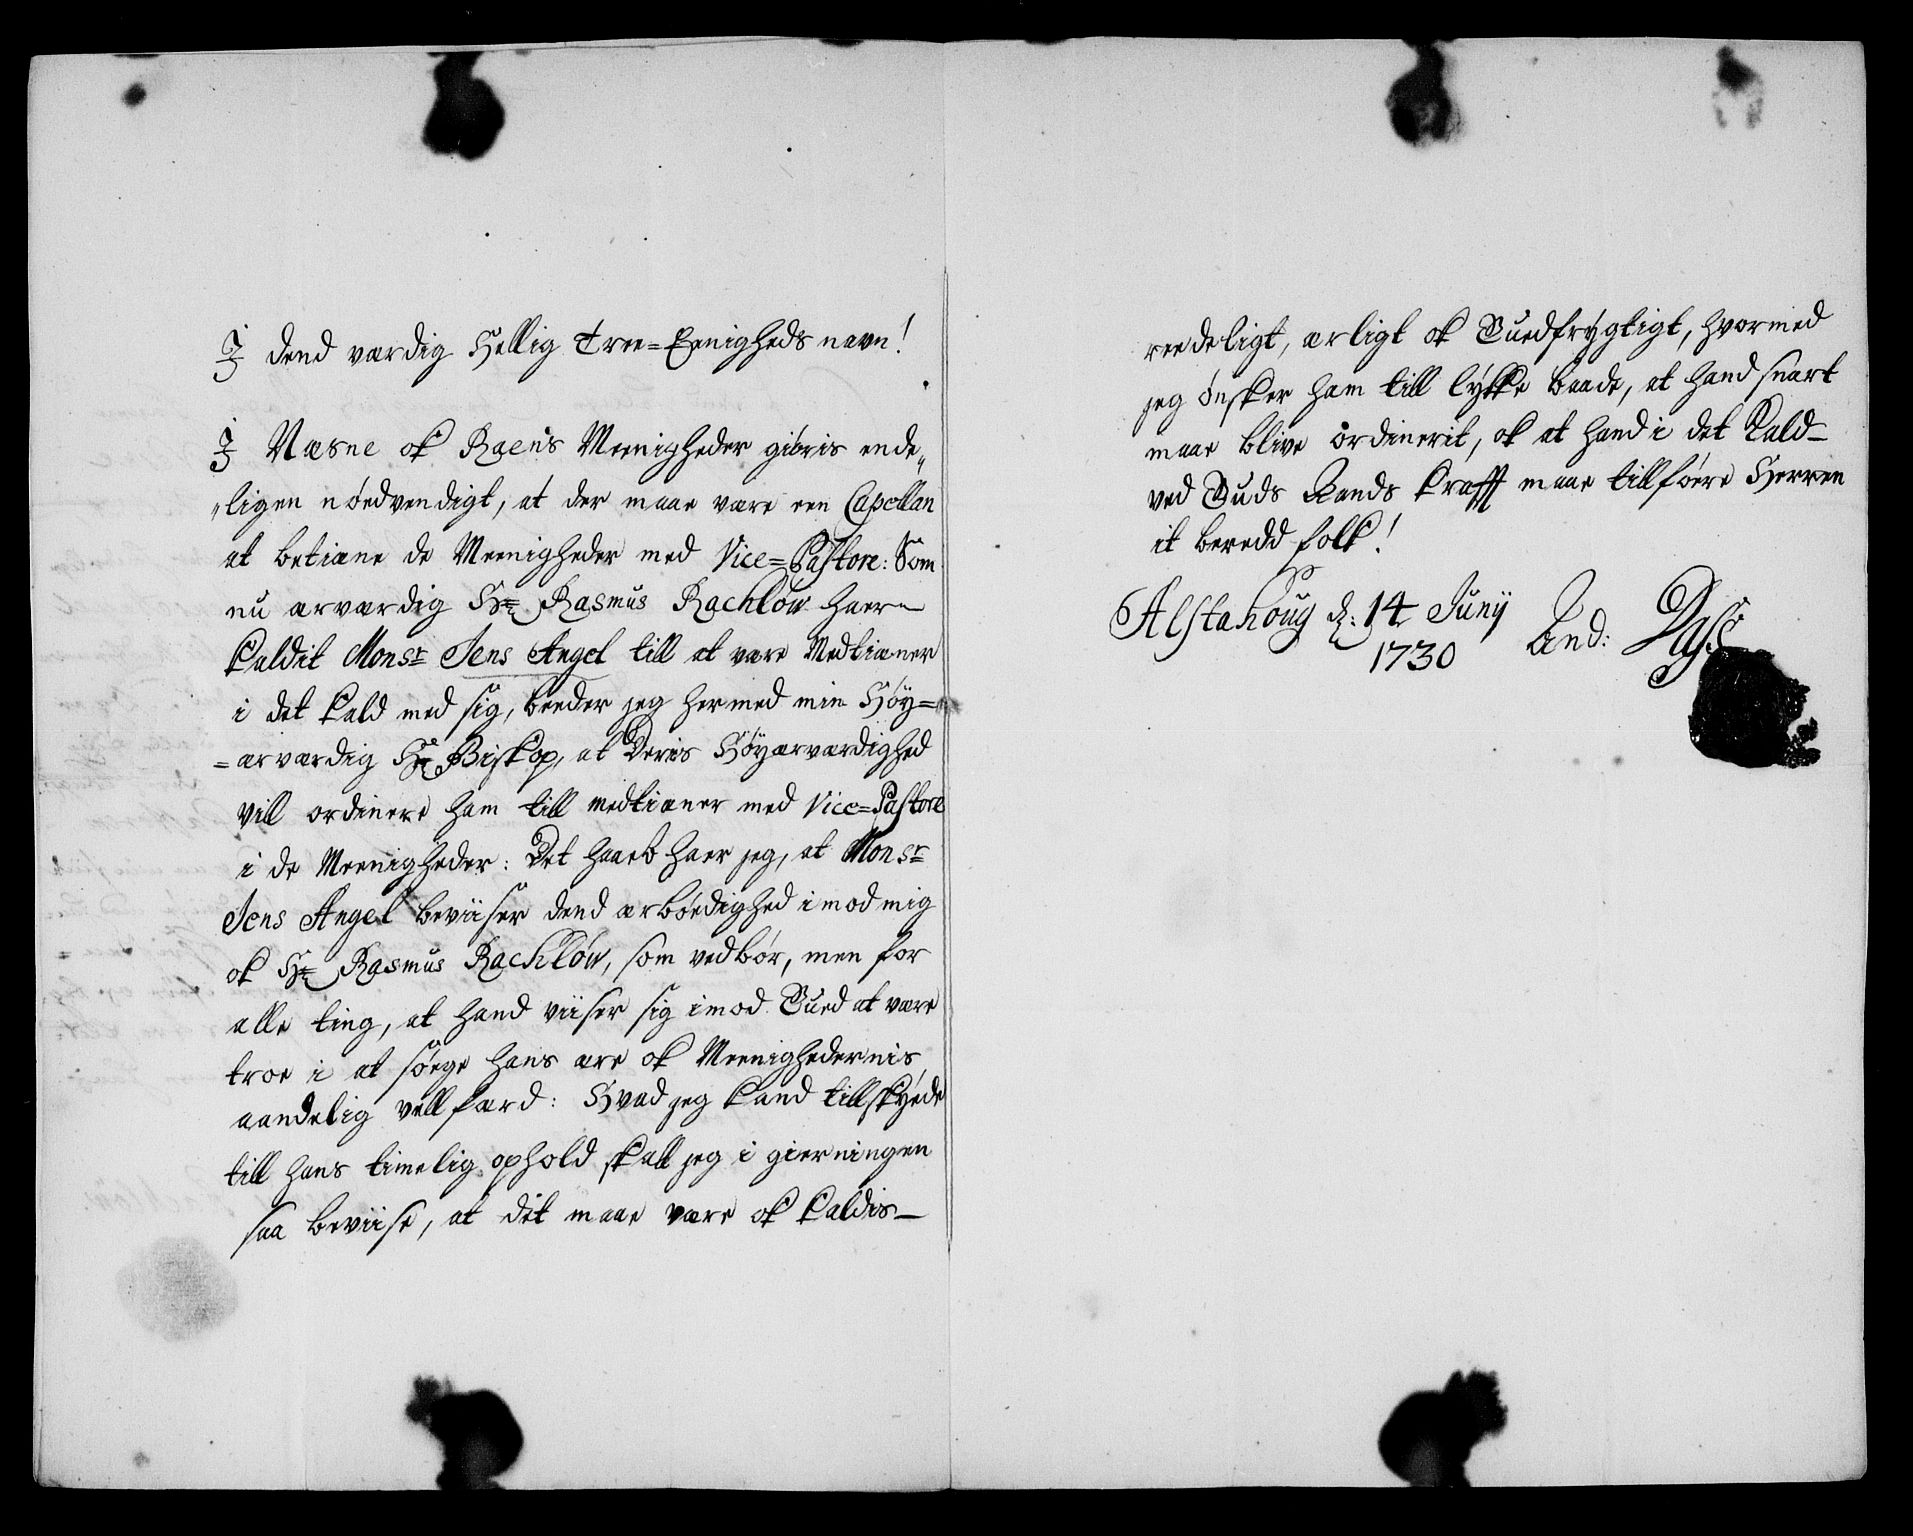 I dend værdig Hellig Tree=Eenigheds navn!
I Næsne ok Raens Meenigheder giöris ende„
„ligen nöedvendigt, at der maae være een Capellan
at betiæne de Meenigheder med Vice=Pastore: Som
nu ærværdig Hr Rasmus Rachlöw haer
kaldit Monsr Jens Angel till at være Medtiæner
i det kald med sig, beeder jeg hermed min Höy=
=ærværdig Hr Biskop, at Deris Höyærværdighed
vill ordinere ham till medtiæner med Vice=Pastore
i de Meenigheder: Det haab haer jeg, at Monsr
Jens Angel beviiser dend ærböedighed imod mig
ok Hr Rasmus Rachlöw, som vedbör, men for
alle ting, at hand viiser sig imod Gued at være
troe i at söege hans ære ok Meenighedernis
aandelig velfærd: Hvad jeg kand tillskyede
till hans timelig ophold skall jeg i gierningen
saa beviise, at dit maae være ok kaldis
reedeligt, ærligt ok Guedfrygtigt, hvormed
jeg önsker ham till lykke baade, at hand snart
maae blive ordinerit, ok at hand i det Kald
ved Guds Aands krafft maae tillföere Herren
it beredd folk!
Alstahoug d: 14 Junij
1730
And: Dass